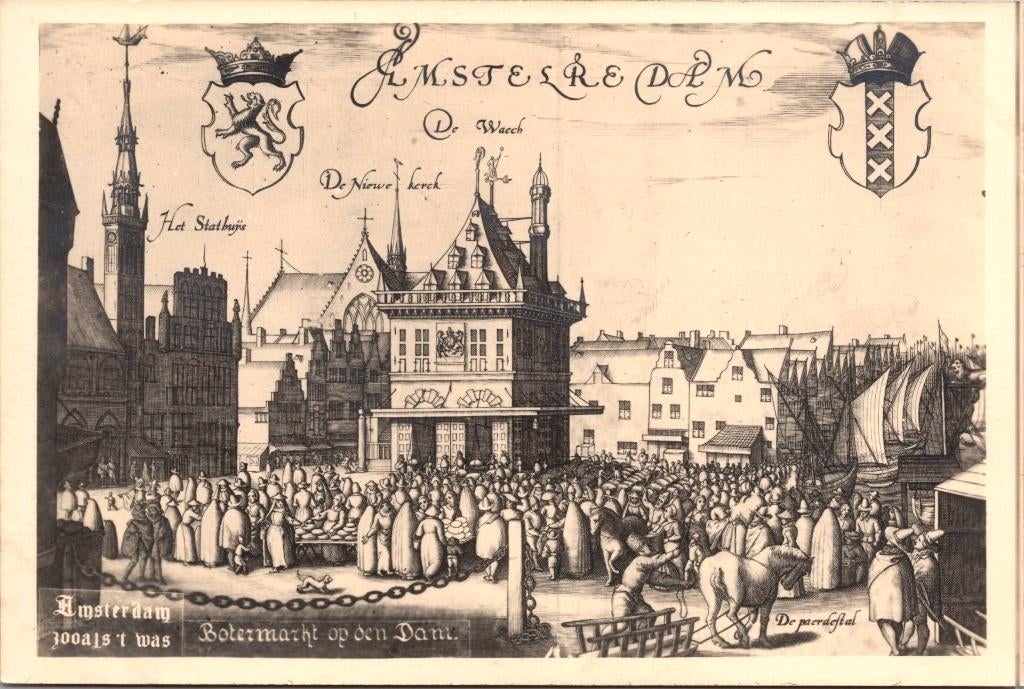 AMSTELREDAM
De Waech
De Niewe kerck
Het Stathuÿs
De paerdestal
Amsterdam
zooals 't was
Botermarkt op den Dam.